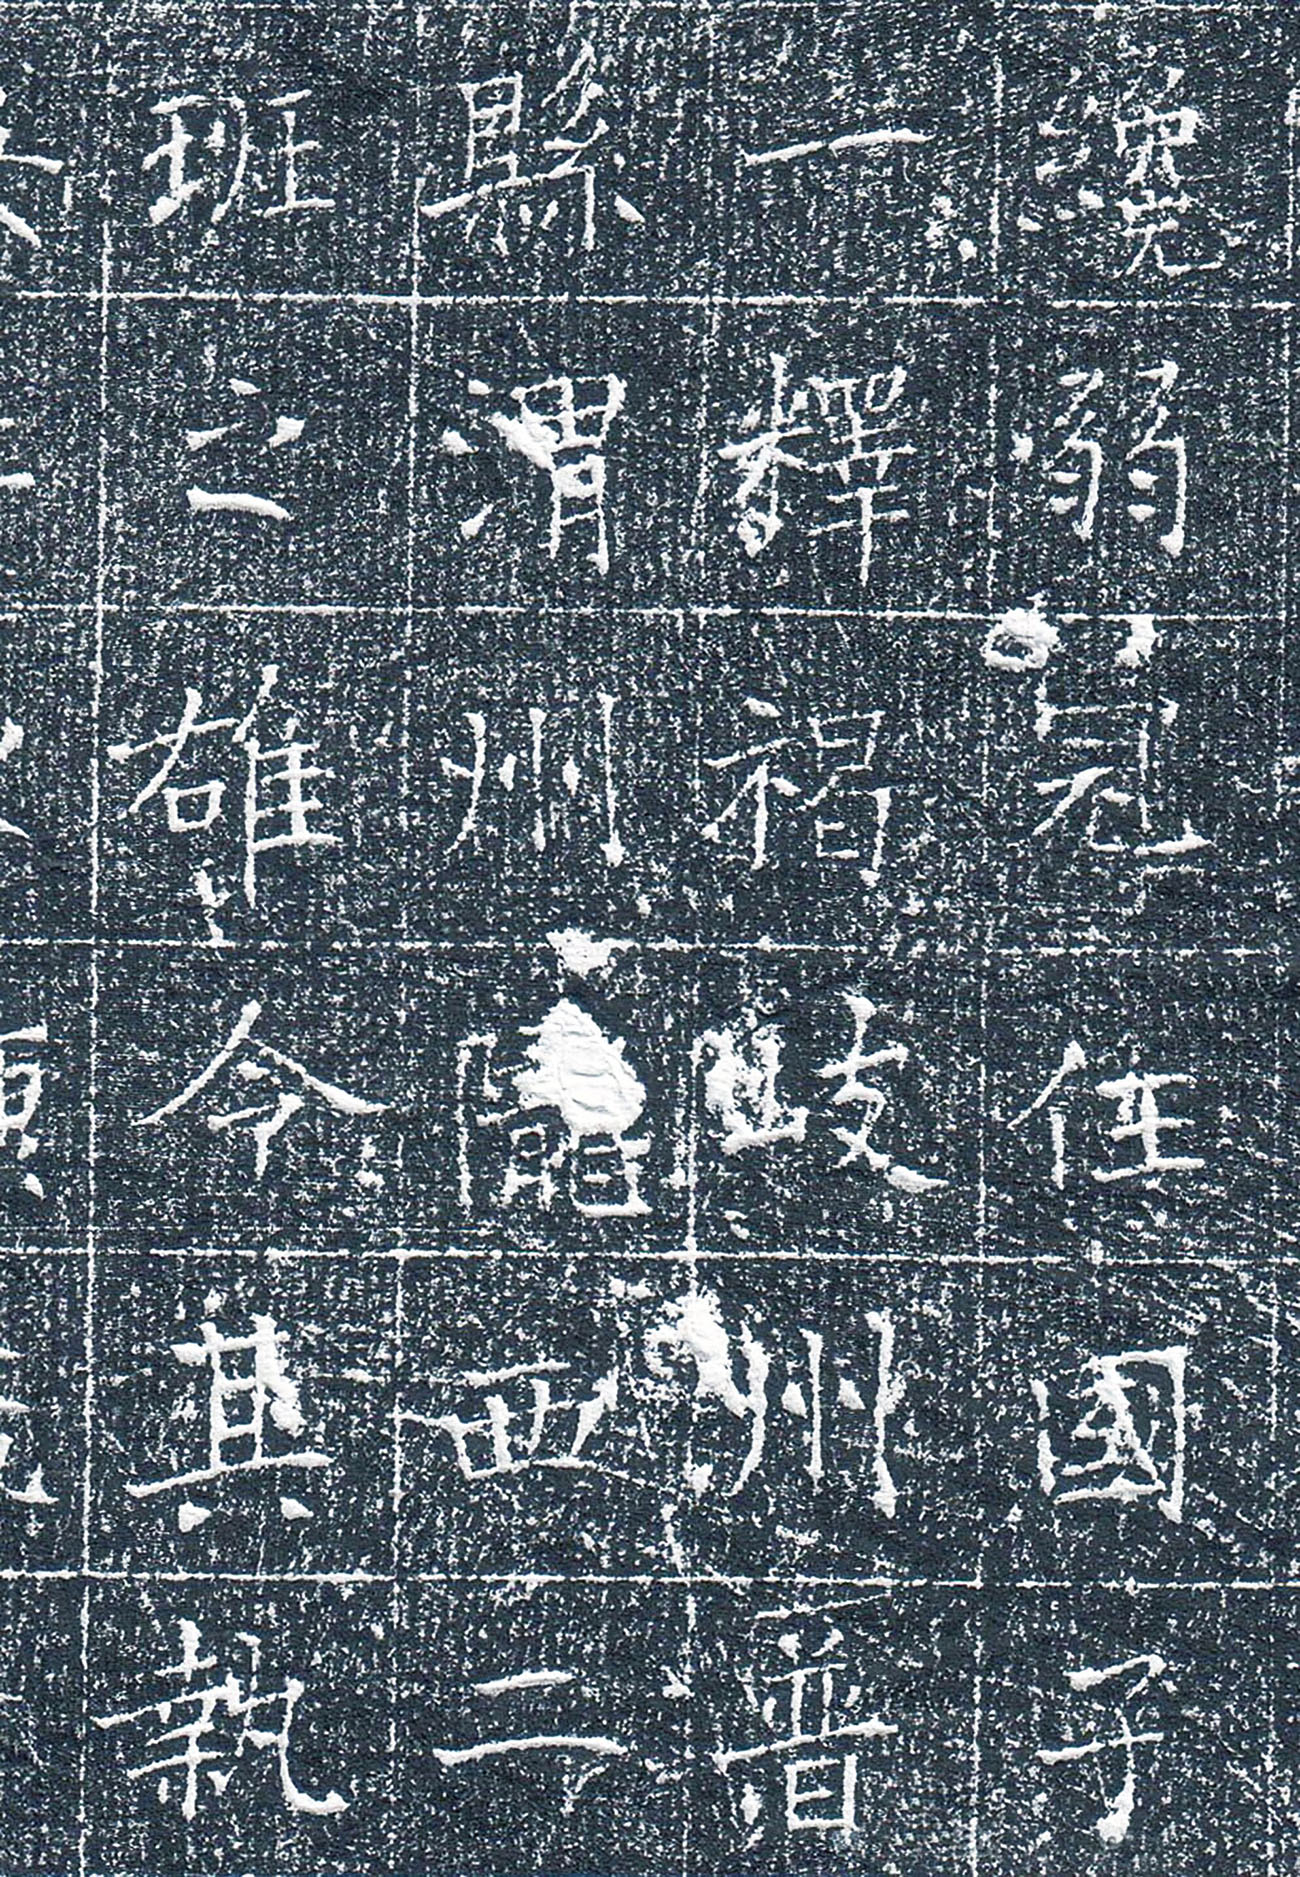 纔弱冠任國子
一釋褐岐州普
縣渭州隴西二
班之雄令其執